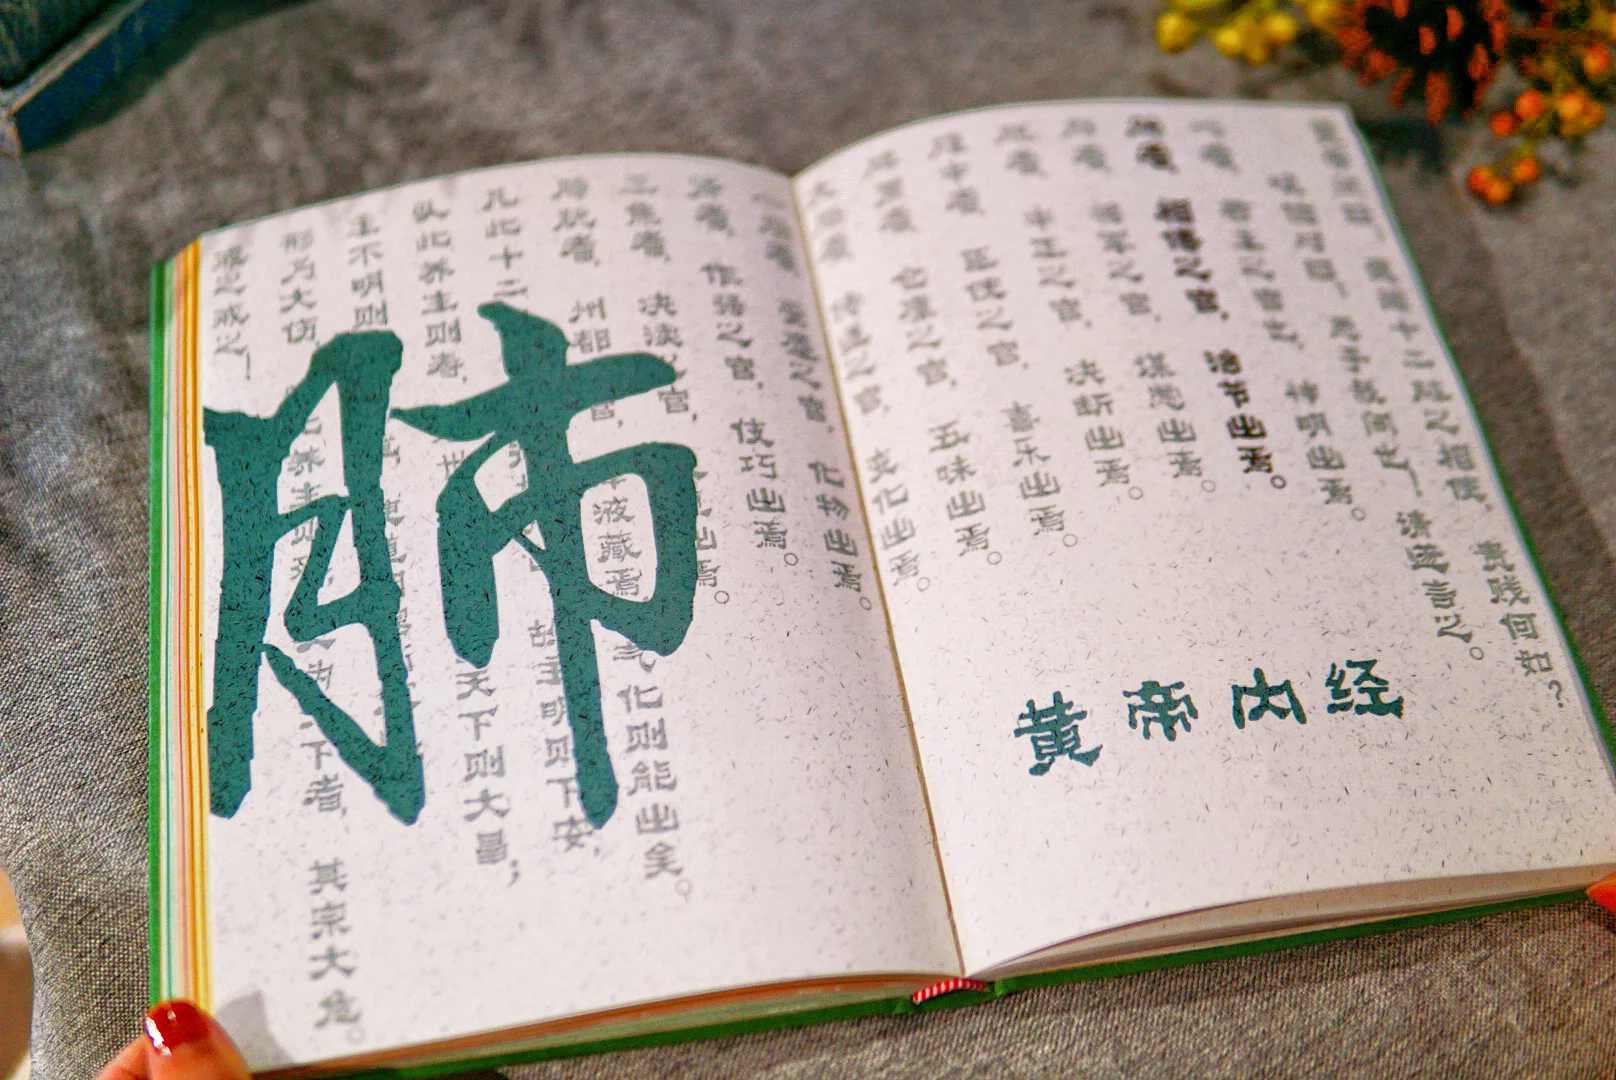 黄帝问曰：愿闻十二脏之相使，贵贱何如？
岐伯对曰：悉乎哉问也！请遂言之。
心者，君主之官也，神明出焉。
肺者，相傅之官，治节出焉。
肝者，将军之官，谋虑出焉。
胆者，中正之官，决断出焉。
膻中者，臣使之官，喜乐出焉。
脾胃者，仓廪之官，五味出焉。
大肠者，传道之官，变化出焉。
黄帝内经
小肠者，受盛之官，化物出焉。
肾者，作强之官，伎巧出焉。
三焦者，决渎之官，出焉。
膀胱者，州都之官，津液藏焉，气化则能出矣。
凡此十二 故主明则下安，
以此养生则寿，世 天下则大昌；
主不明则 使道闭塞
形乃大伤，养生则 为天下者，其宗大危。
戒之！
肺